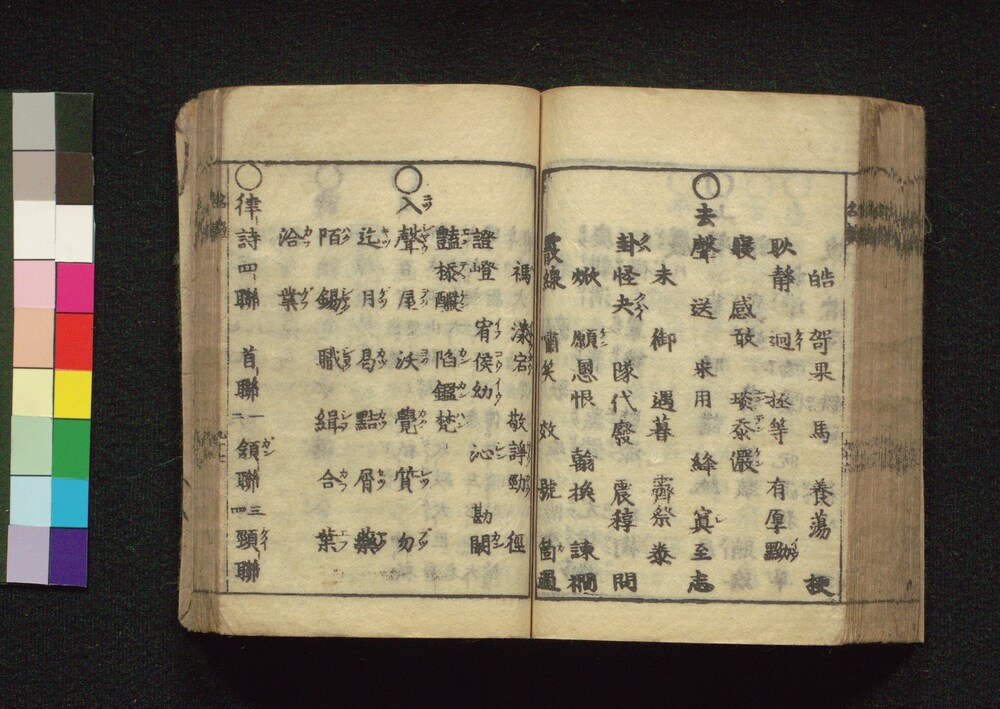 皓 哿果 馬 養蕩 梗
耿静 迥イ拯等 有厚黝
寝 感敢 琰忝儼
○去聲 送 宋用 絳 寘至志
未 御 遇暮 霽祭 泰
卦怪夬 隊代廢 震稕 問
焮 願恩恨 翰換 諫襇
霰線 嘯笑 效 號 箇過
禡 漾宕 敬諍勁 徑
證嶝 宥侯幼 沁 勘闞
豔㮇釅 陷鑑梵
○入聲 屋 沃 覺 質 勿
迄 月 曷 黠 屑 藥
陌 錫 職 緝 合 葉
洽 業
○律詩四聯 首聯一二 頷聯三四 頸聯